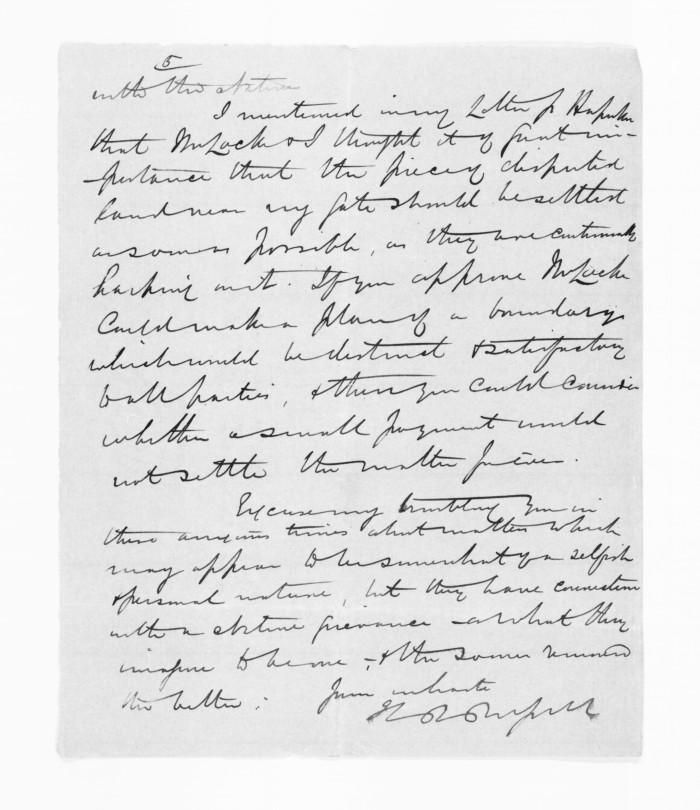 5
with the Natives
I mentioned in my Letter pr Hapuku
that Mr Locke & I thought it of great im-
-portance that the piece of disputed
land near my gate should be settled
as soon as possible, as they are continually
harping on it. If you approve Mr Locke
could make a plan of a boundary
which would be distinct & satisfactory
to all parties, & then you could consider
whether a small payment would
not settle the matter for ever.
Excuse my troubling you in
these anxious times about matters which
may appear to be somewhat of a selfish
& personal nature, but they have connection
with a native grievance - or what they
imagine to be one -; & the sooner removed
the better:
Yours in haste
H R Russell